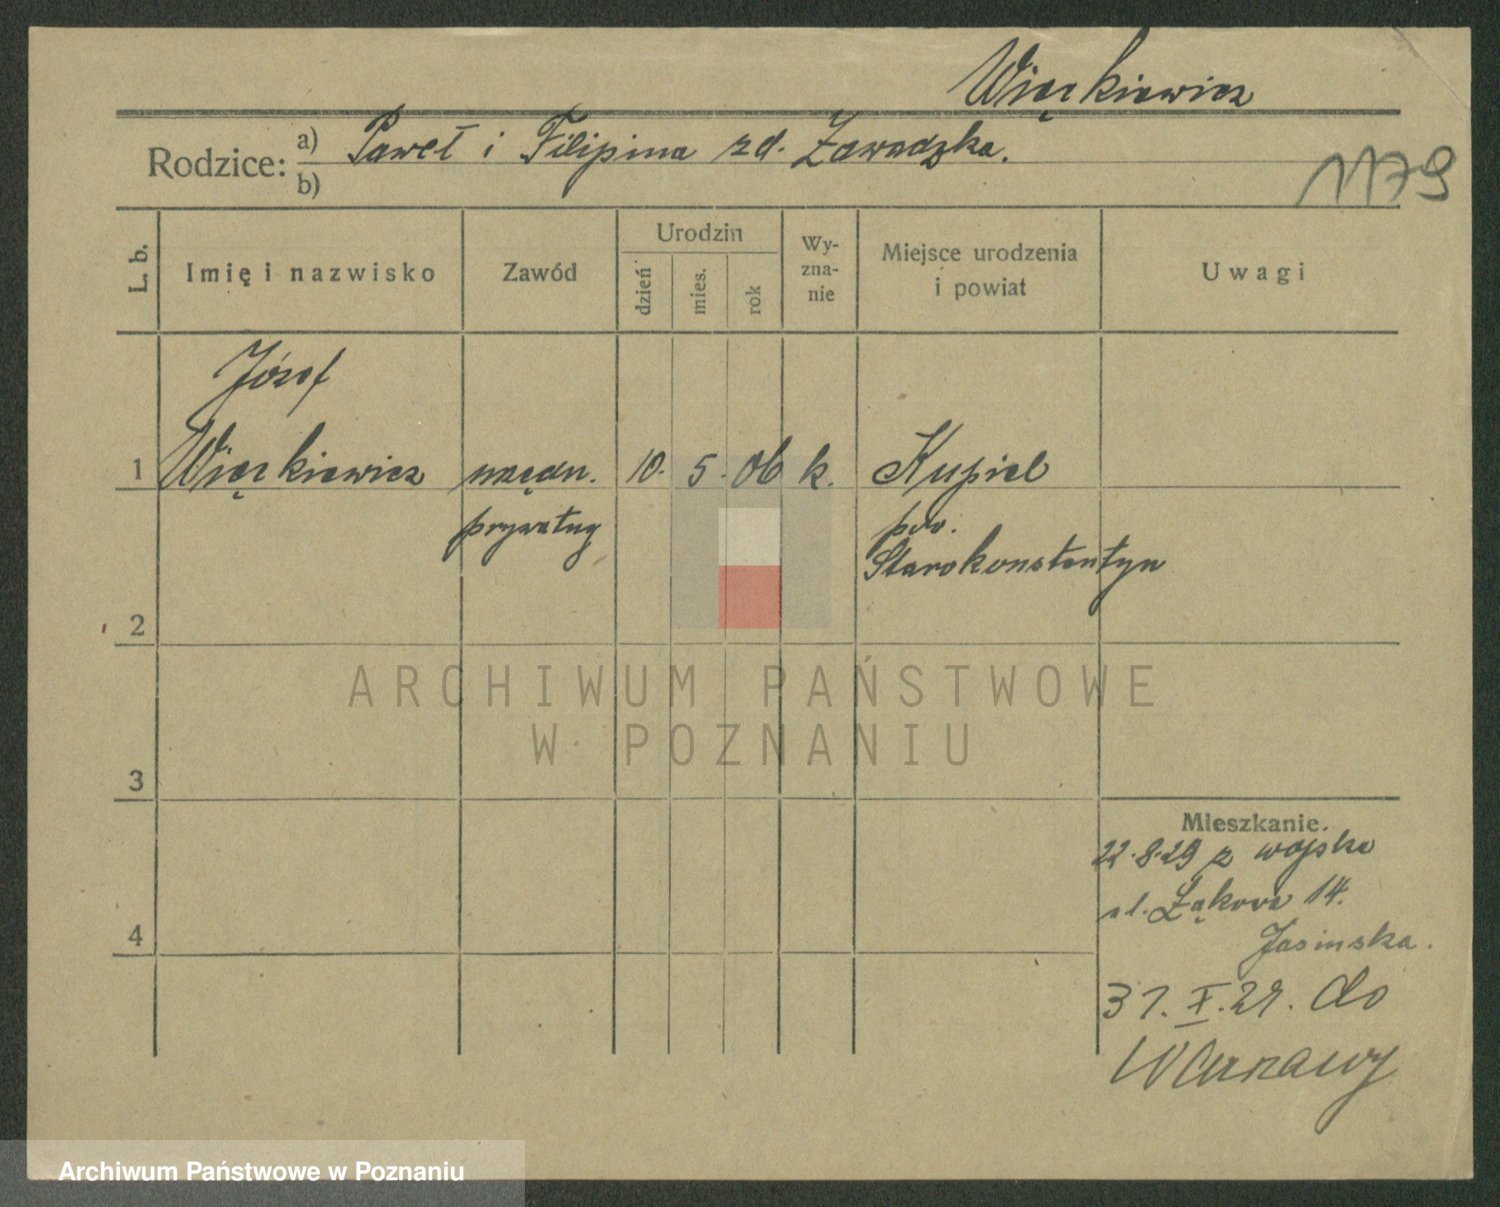 Więckiewicz
Rodzice: a) Paweł i Filipina zd. Zawadzka.
b)
1179
L. b.
Imię i nazwisko
Zawód
Urodzin
dzień
mies.
rok
Wy-
zna-
nie
Miejsce urodzenia
i powiat
Uwagi
Józef
1 Więckiewicz urzędn. 10. 5. 06 k. Kupiel
prywatny pow.
Starokonstantyn
2
3
4
Mieszkanie.
22.8.29 z wojska
ul. Łąkowa 14.
Jasinska.
31. X. 29. do
Warszawy
ARCHIWUM PAŃSTWOWE
W POZNANIU
Archiwum Państwowe w Poznaniu